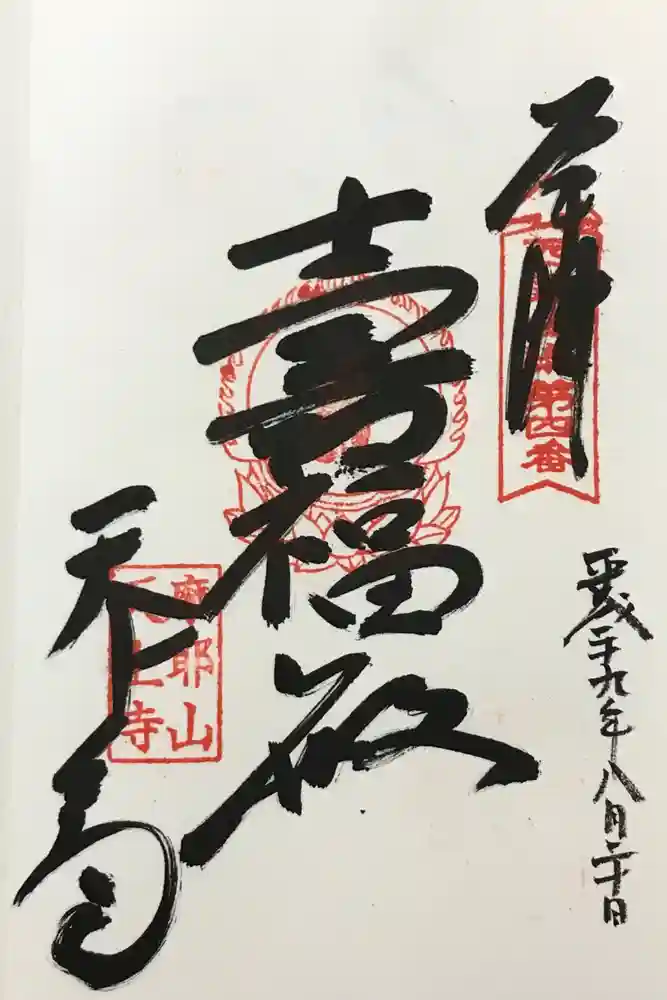 奉拝
第四番
福
天上寺
摩耶山
天上寺
平成二十九年八月二十日